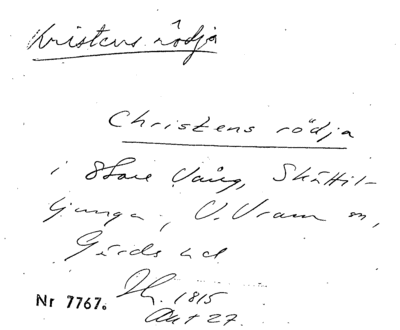 Kristens rödja
Christens rödja
i Store Vång, Skättil-
ljunga, V. Vram sn,
Gärds hd
Nr 7767. 1815
Akt 27.